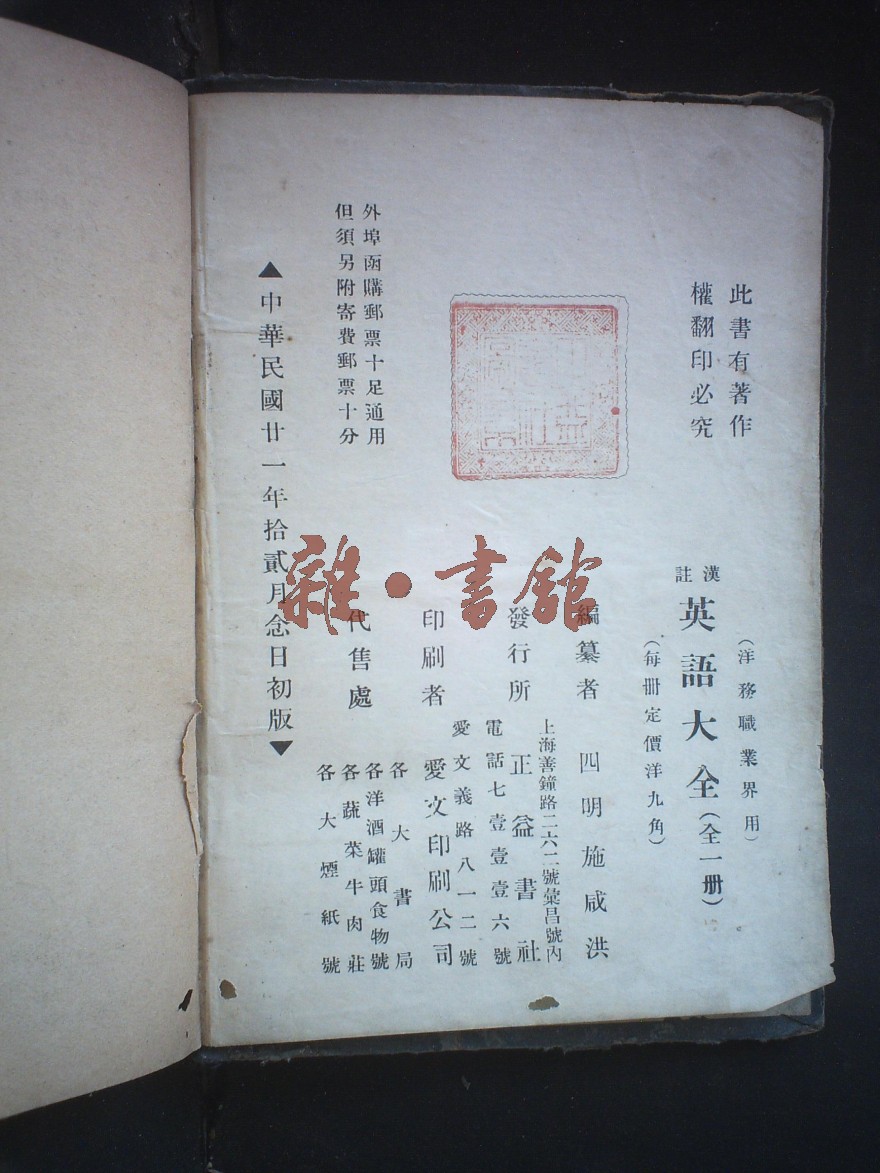 此書有著作
權翻印必究
(洋務職業界用)
漢註
英語大全(全一册)
(每册定價洋九角)
編纂者 四明施咸洪
發行所 上海善鐘路二六二號彙昌號內
正益書社
電話七壹壹壹六號
印刷者 愛文義路八一二號
愛文印刷公司
代售處 各大書局
各洋酒罐頭食物號
各蔬菜牛肉莊
各大煙紙號
外埠函購郵票十足通用
但須另附寄費郵票十分
▲中華民國廿一年拾貳月念日初版▼
雜·書館